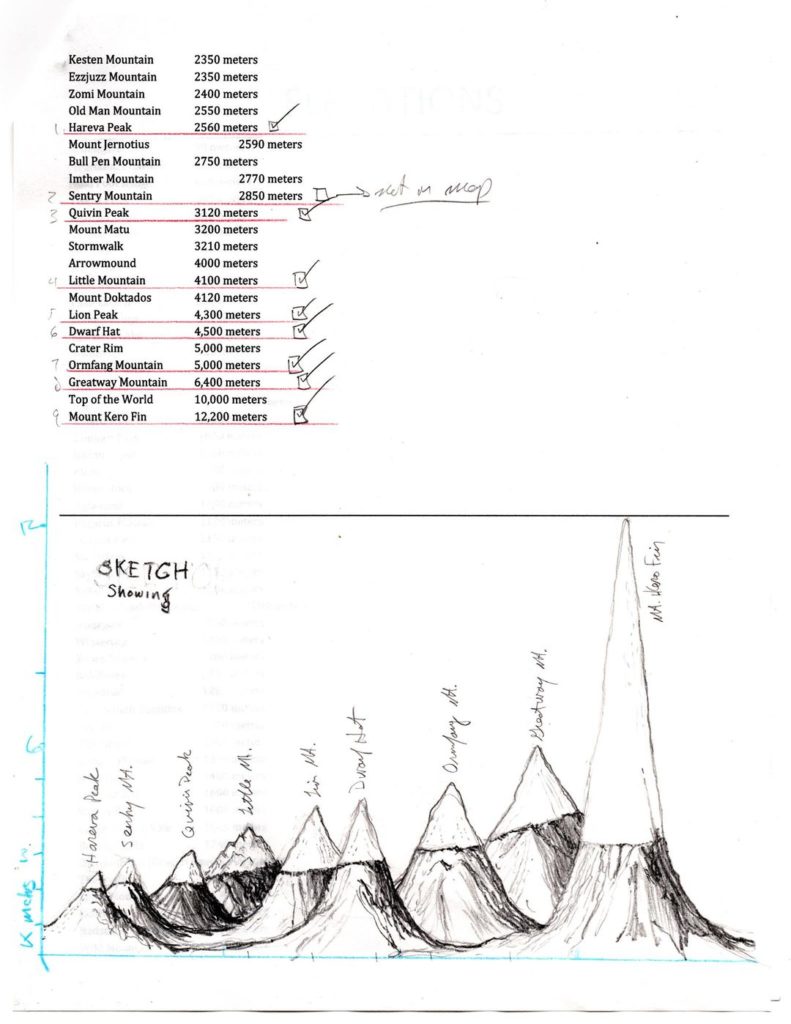 Kesten Mountain 2350 meters
Ezzjuzz Mountain 2350 meters
Zomi Mountain 2400 meters
Old Man Mountain 2550 meters
1. Hareva Peak 2560 meters
Mount Jernotius 2590 meters
Bull Pen Mountain 2750 meters
Imther Mountain 2770 meters
2 Sentry Mountain 2850 meters not on map
3 Quivin Peak 3120 meters
Mount Matu 3200 meters
Stormwalk 3210 meters
Arrowmound 4000 meters
4 Little Mountain 4100 meters
Mount Doktados 4120 meters
5 Lion Peak 4,300 meters
6 Dwarf Hat 4,500 meters
Crater Rim 5,000 meters
7 Ormfang Mountain 5,000 meters
8 Greatway Mountain 6,400 meters
Top of the World 10,000 meters
9 Mount Kero Fin 12,200 meters
SKETCH
Showing
12
6
K meters
Hareva Peak
Sentry Mt.
Quivin Peak
Little Mt.
Lion Mt.
Dwarf Hat
Ormfang Mt.
Greatway Mt.
Mt. Kero Fin